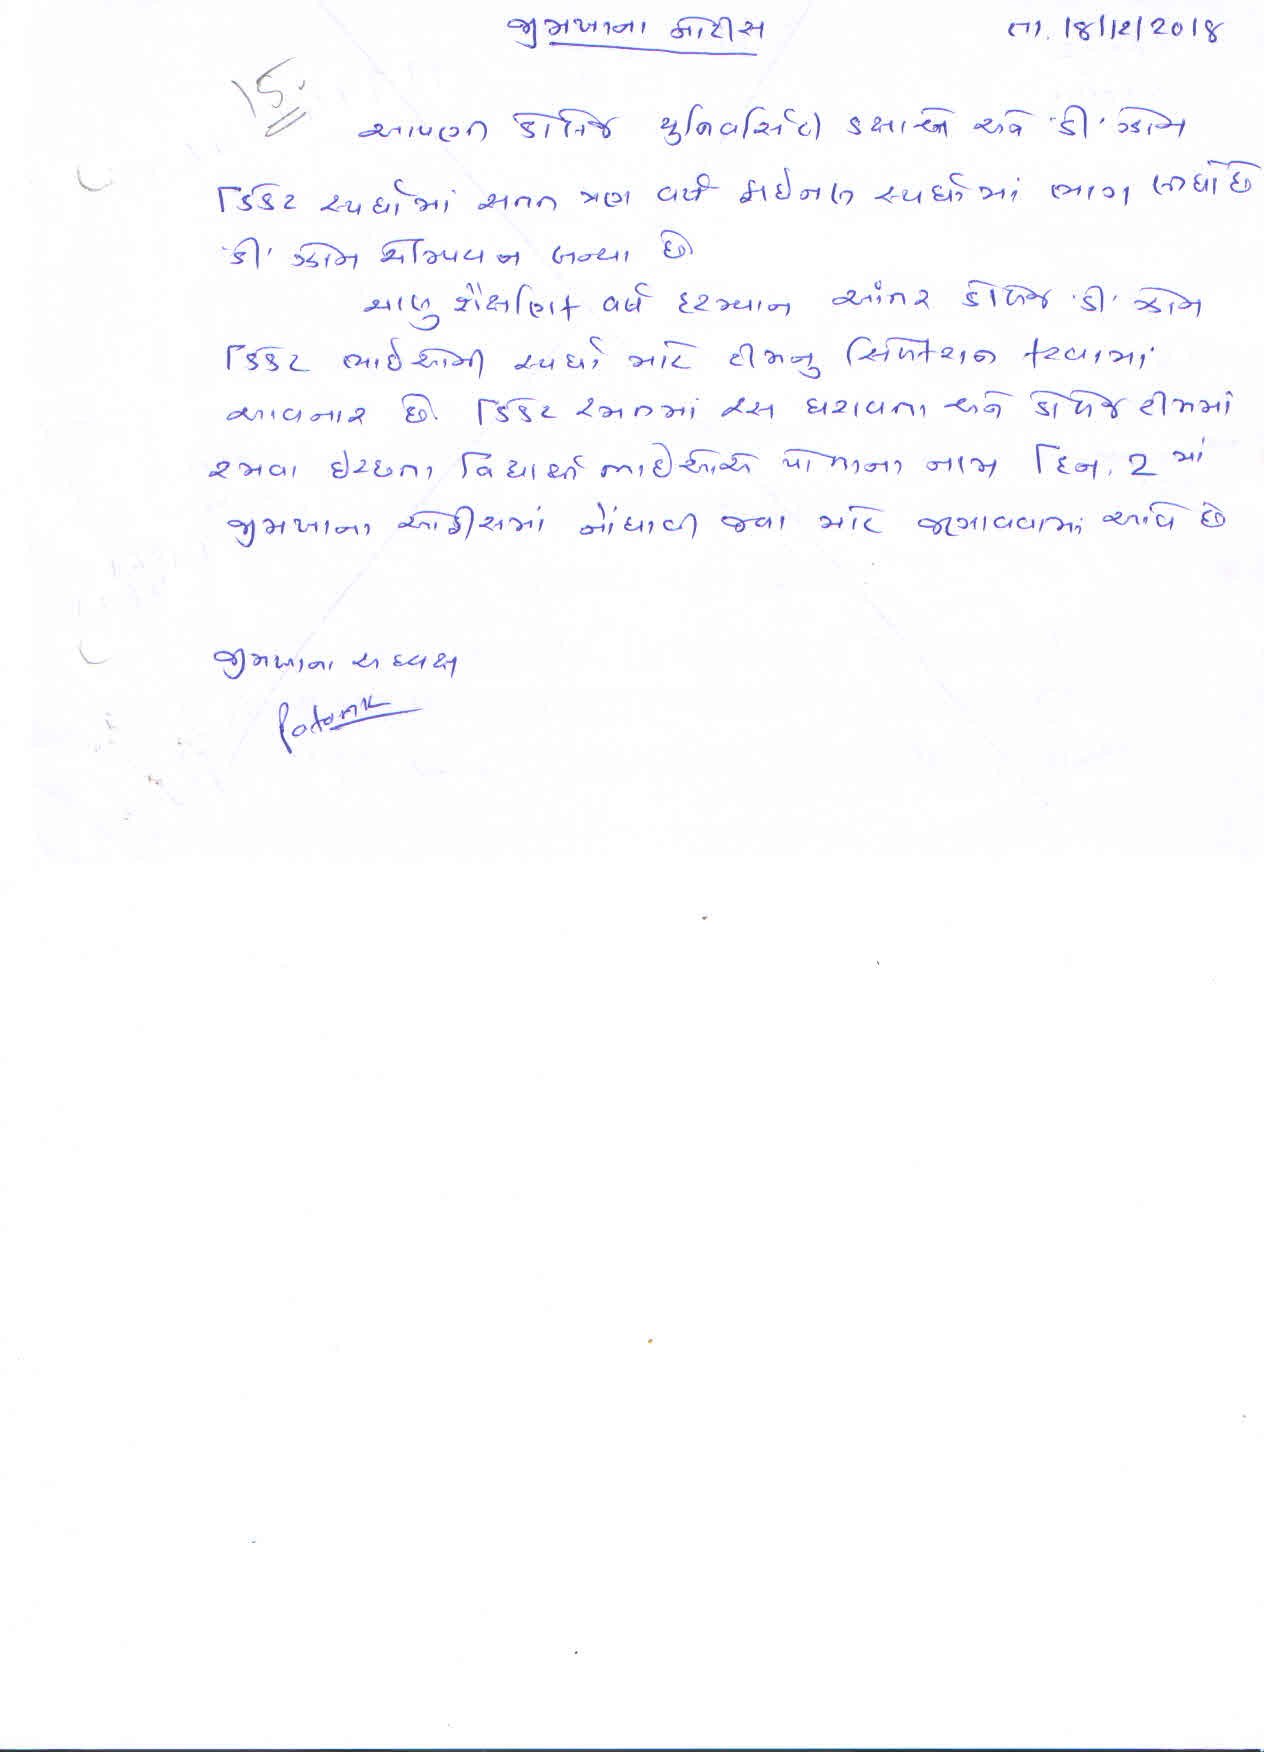 જીમખાના નોટીસ
તા. 18/12/2018
15.
આપણી કોલેજે યુનિવર્સિટી કક્ષાએ અને 'ડી' ઝોન
ક્રિકેટ સ્પર્ધામાં સતત ત્રણ વર્ષ ફાઇનલ સ્પર્ધામાં ભાગ લીધો છે
'ડી' ઝોન ચેમ્પિયન બન્યા છે
ચાલુ શૈક્ષણિક વર્ષ દરમ્યાન આંતર કોલેજ 'ડી' ઝોન
ક્રિકેટ ભાઇઓની સ્પર્ધા માટે ટીમનુ સિલેકશન કરવામાં
આવનાર છે. ક્રિકેટ રમતમાં રસ ધરાવતા અને કોલેજ ટીમમાં
રમવા ઇચ્છતા વિદ્યાર્થી ભાઇઓએ પોતાના નામ દિન. 2 માં
જીમખાના ઓફીસમાં નોંધાવી જવા માટે જણાવવામાં આવે છે
જીમખાના અધ્યક્ષ